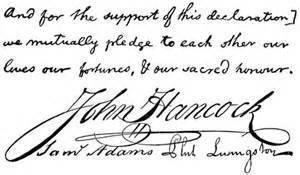 And for the support of this declaration]
we mutually pledge to each other our
lives our fortunes, & our sacred honour.
John Hancock
H
Sam^l Adams Phil Livingston